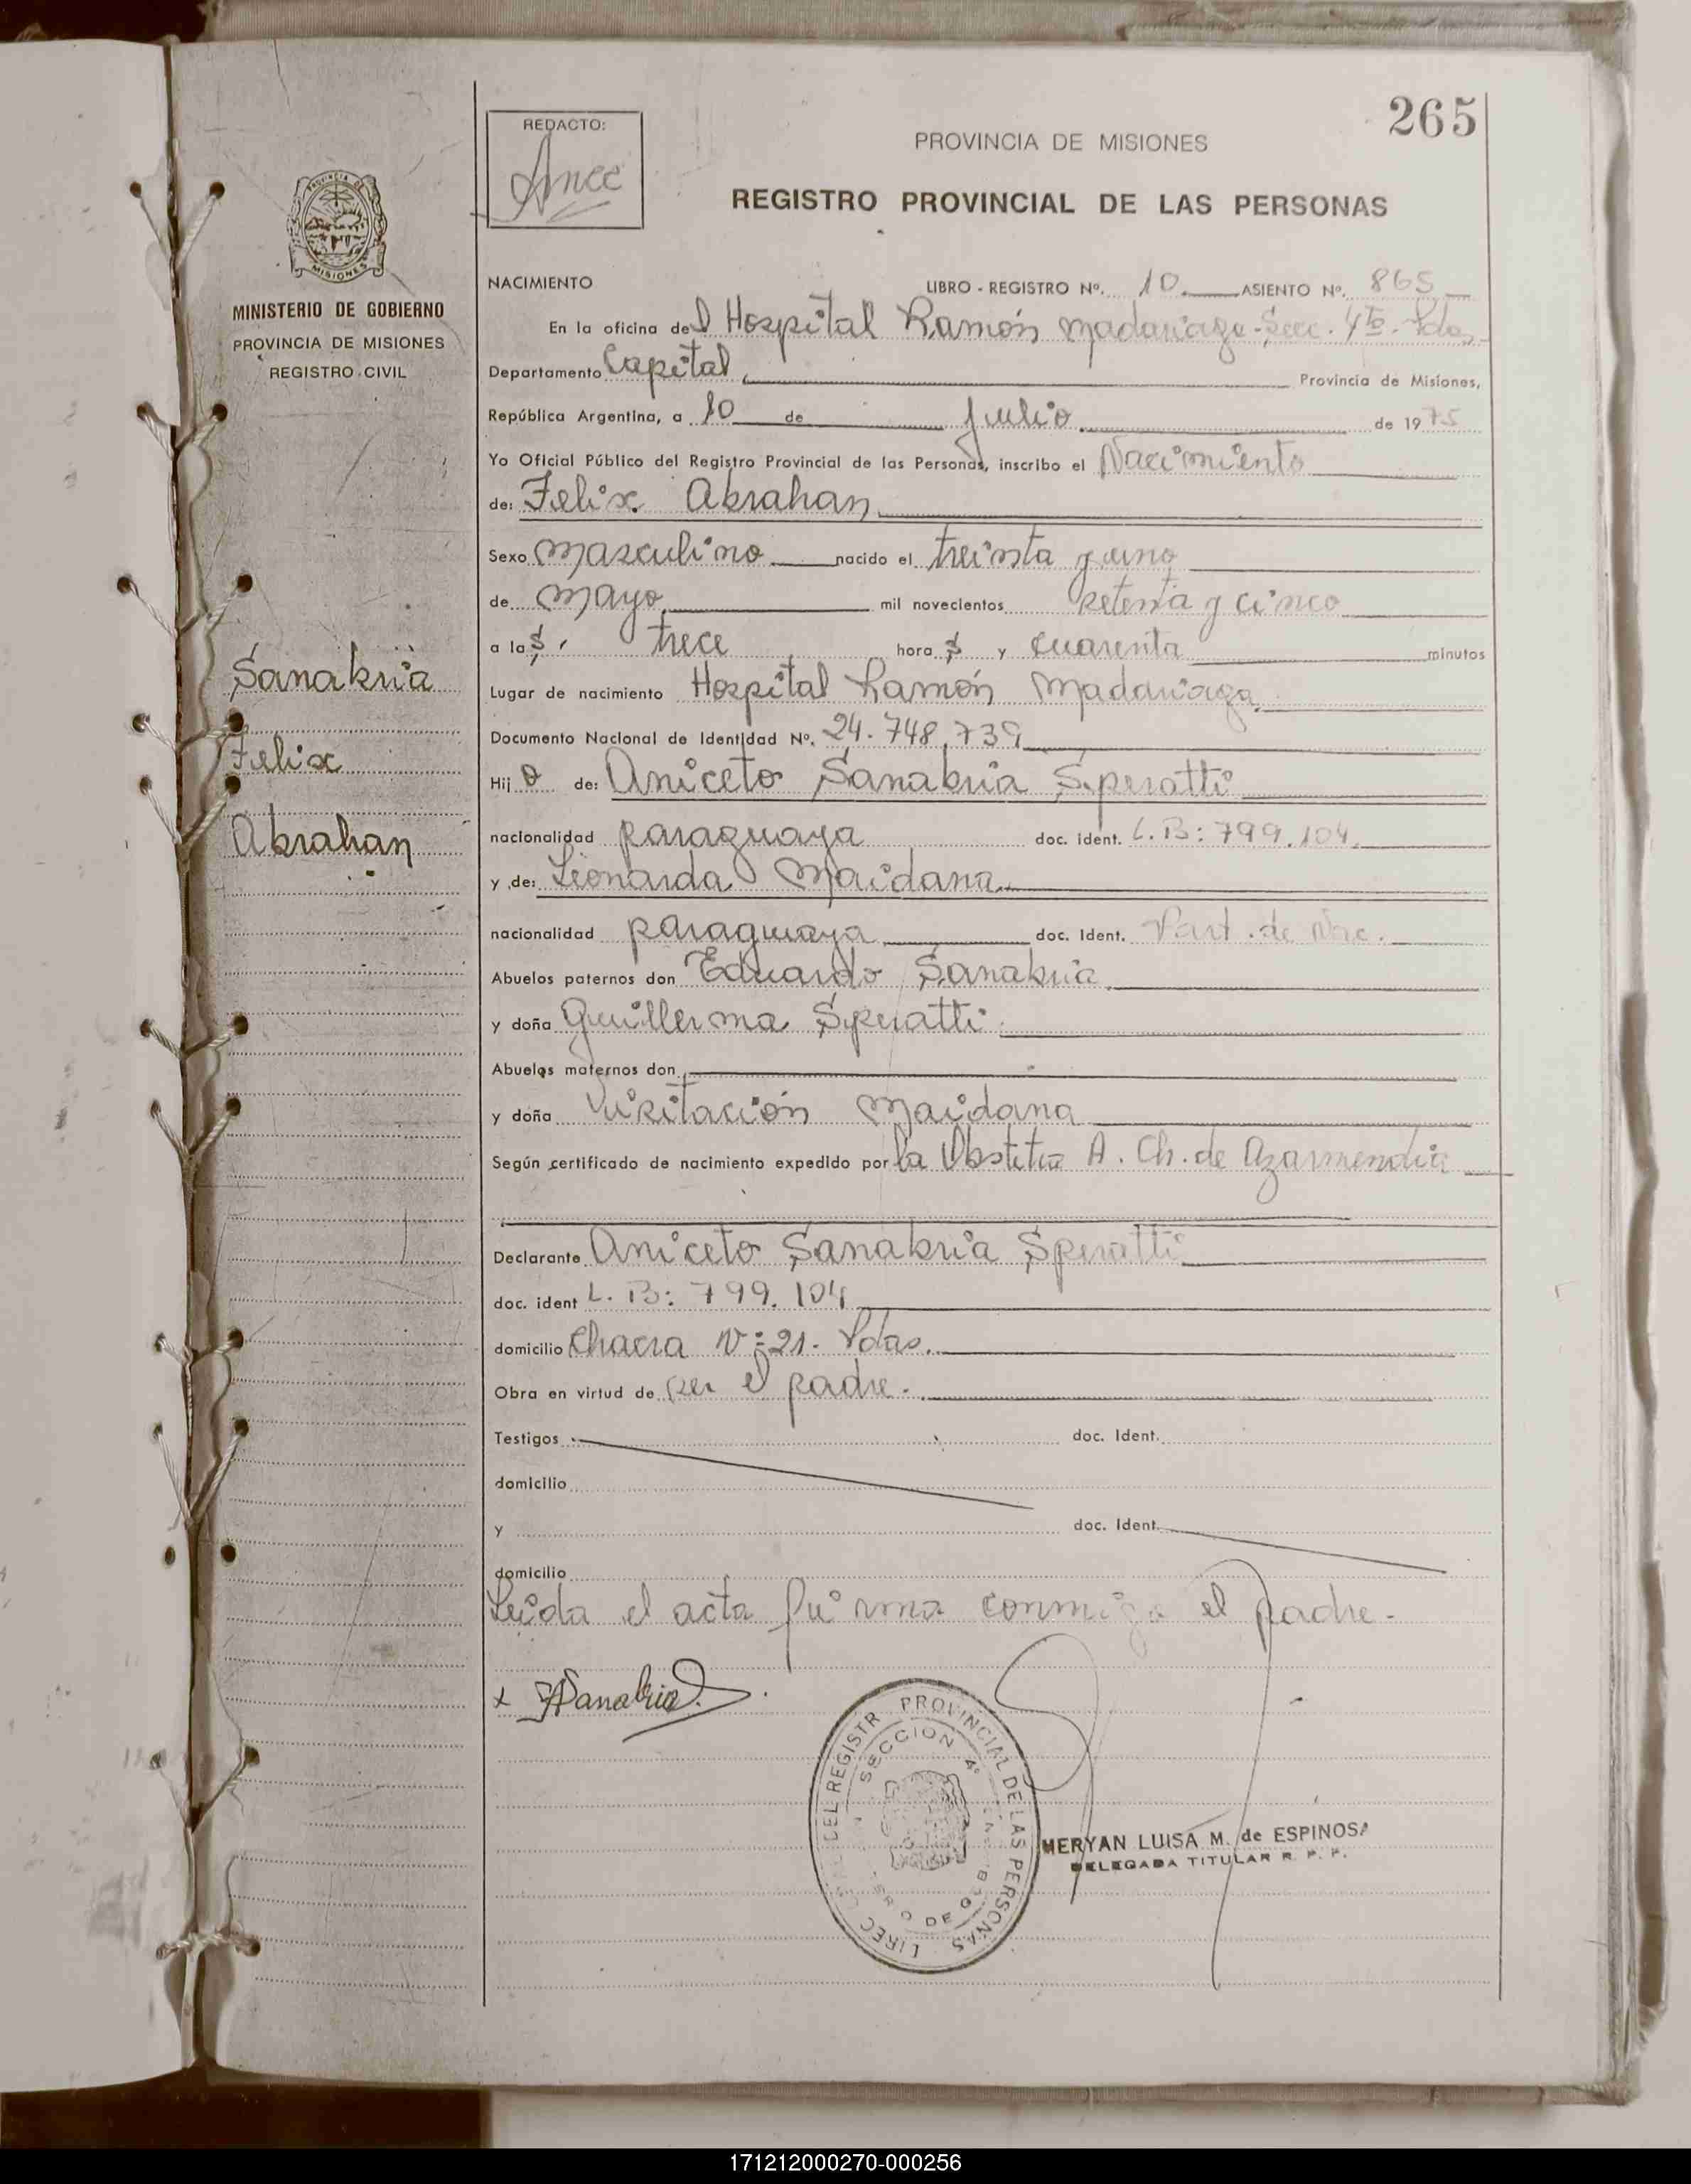 265
REDACTO:
PROVINCIA DE MISIONES
REGISTRO PROVINCIAL DE LAS PERSONAS
PROVINCIA DE
MISIONES
MINISTERIO DE GOBIERNO
PROVINCIA DE MISIONES
REGISTRO CIVIL
Sanabria
Felix
Abrahan
NACIMIENTO LIBRO - REGISTRO Nº. 10 ASIENTO Nº. 865
En la oficina del Hospital Ramón Madariaga - Secc. 4ta. Pdas
Departamento Capital, Provincia de Misiones,
República Argentina, a 10 de Julio de 1975
Yo Oficial Público del Registro Provincial de las Personas, inscribo el Nacimiento
de: Felix Abrahan
Sexo Masculino nacido el treinta y uno
de Mayo mil novecientos setenta y cinco
a las trece horas y cuarenta minutos
Lugar de nacimiento Hospital Ramón Madariaga.
Documento Nacional de Identidad Nº. 24.748.739
Hijo de: Aniceto Sanabria Speratti
nacionalidad paraguaya doc. ident. L.B: 799.104.
y de: Leonarda Maidana
nacionalidad paraguaya doc. Ident. Part. de Nac.
Abuelos paternos don Eduardo Sanabria
y doña Guillerma Speratti
Abuelos maternos don
y doña Visitación Maidana
Según certificado de nacimiento expedido por la Obstetra A. Ch. de Azarmendia
Declarante Aniceto Sanabria Speratti
doc. ident L. B: 799.104
domicilio Chacra Nº 21 - Pdas.
Obra en virtud de ser el padre.
Testigos doc. Ident.
domicilio
y doc. Ident.
domicilio
Leida el acta firma conmigo el padre.-
x Sanabria
PROVINCIAL DE LAS PERSONAS
SECCION 4ª
MERYAN LUISA M. de ESPINOSA
DELEGADA TITULAR R. P. P.
171212000270-000256